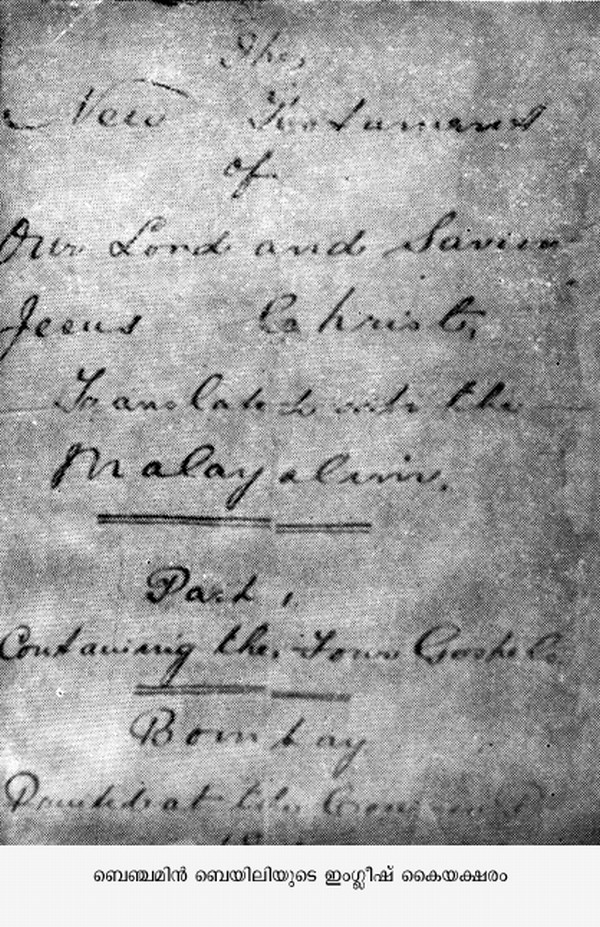 The
New Testament
of
Our Lord and Saviour
Jesus Christ,
Translated into the
Malayalim.
Part 1.
Containing the Four Gospels
Bombay
Printed at the
ബെഞ്ചമിൻ ബെയിലിയുടെ ഇംഗ്ലീഷ് കൈയക്ഷരം